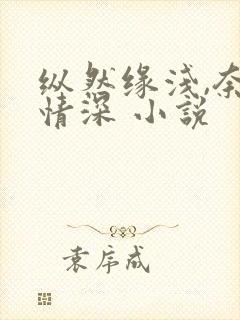 纵然缘浅,奈
情深 小说
袁序成